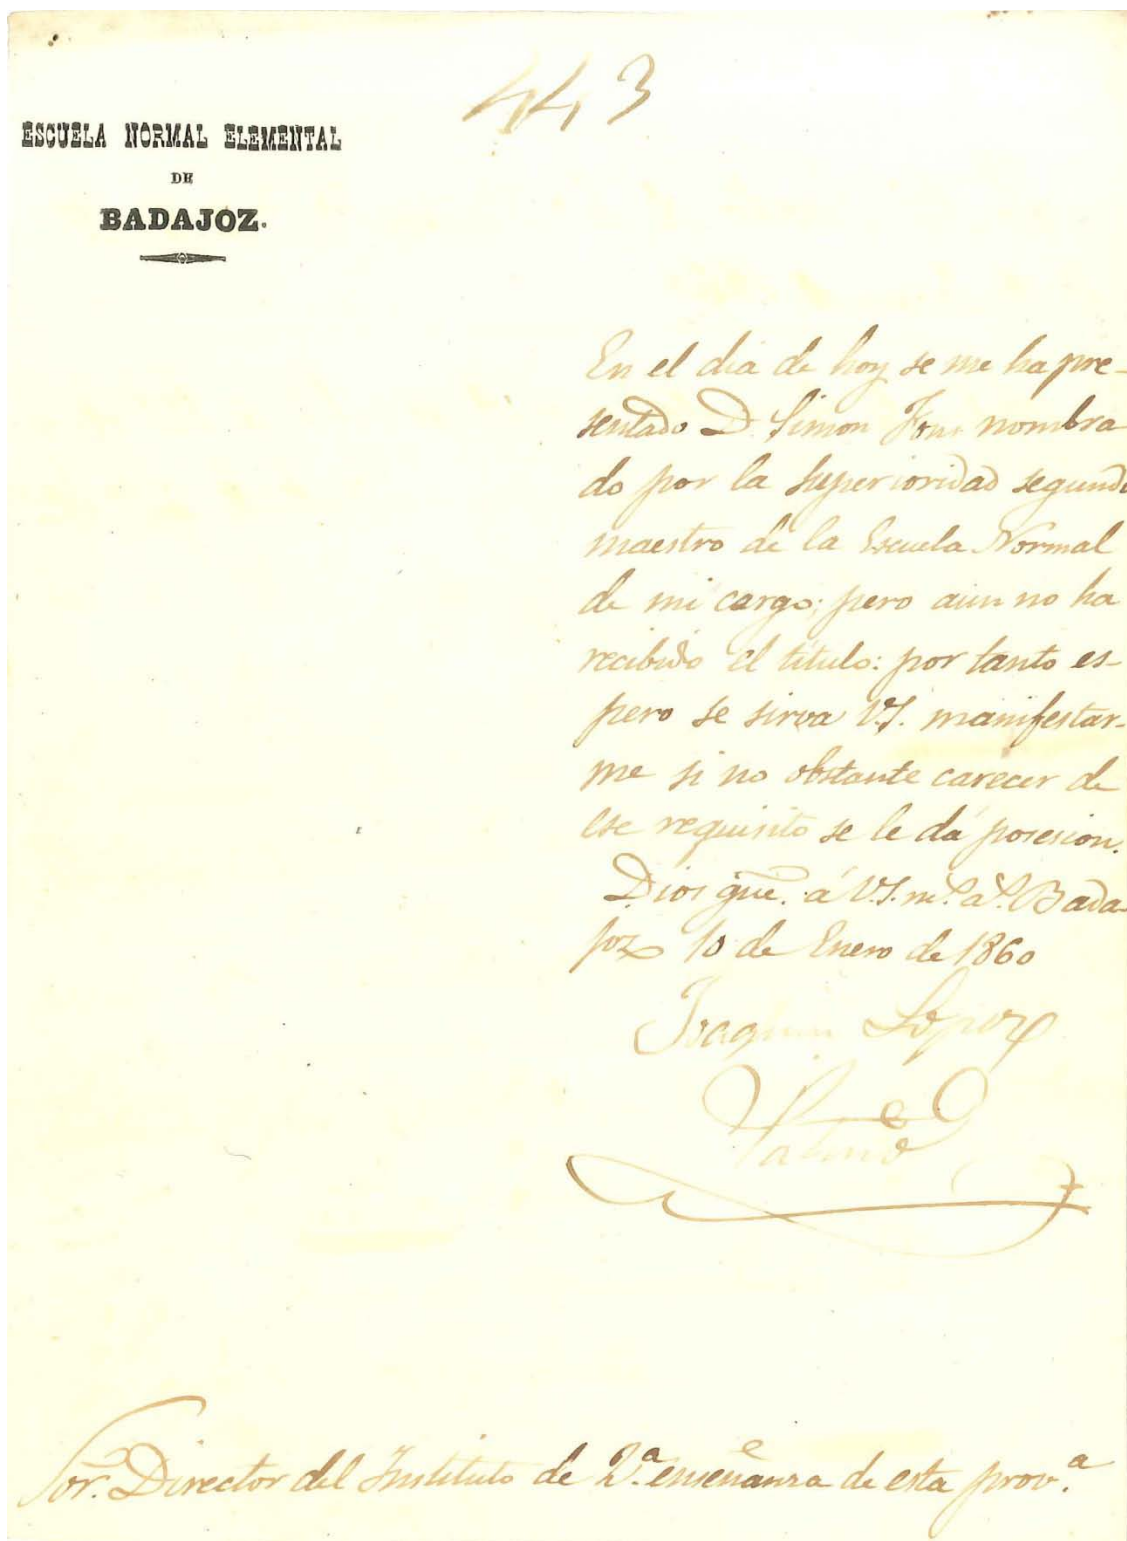 443
ESCUELA NORMAL ELEMENTAL
DE
BADAJOZ.
En el dia de hoy se me ha pre-
sentado D. Simon Fons nombra
do por la Superioridad segundo
maestro de la Escuela Normal
de mi cargo; pero aun no ha
recibido el titulo: por tanto es-
pero se sirva V.S. manifestar-
me si no obstante carecer de
ese requisito se le dá posesion.
Dios gue. á V.S. ms. as. Bada-
joz 10 de Enero de 1860
Joaquin Lopez
Patiño
Sor. Director del Instituto de 2ª enseñanza de esta prov.ª